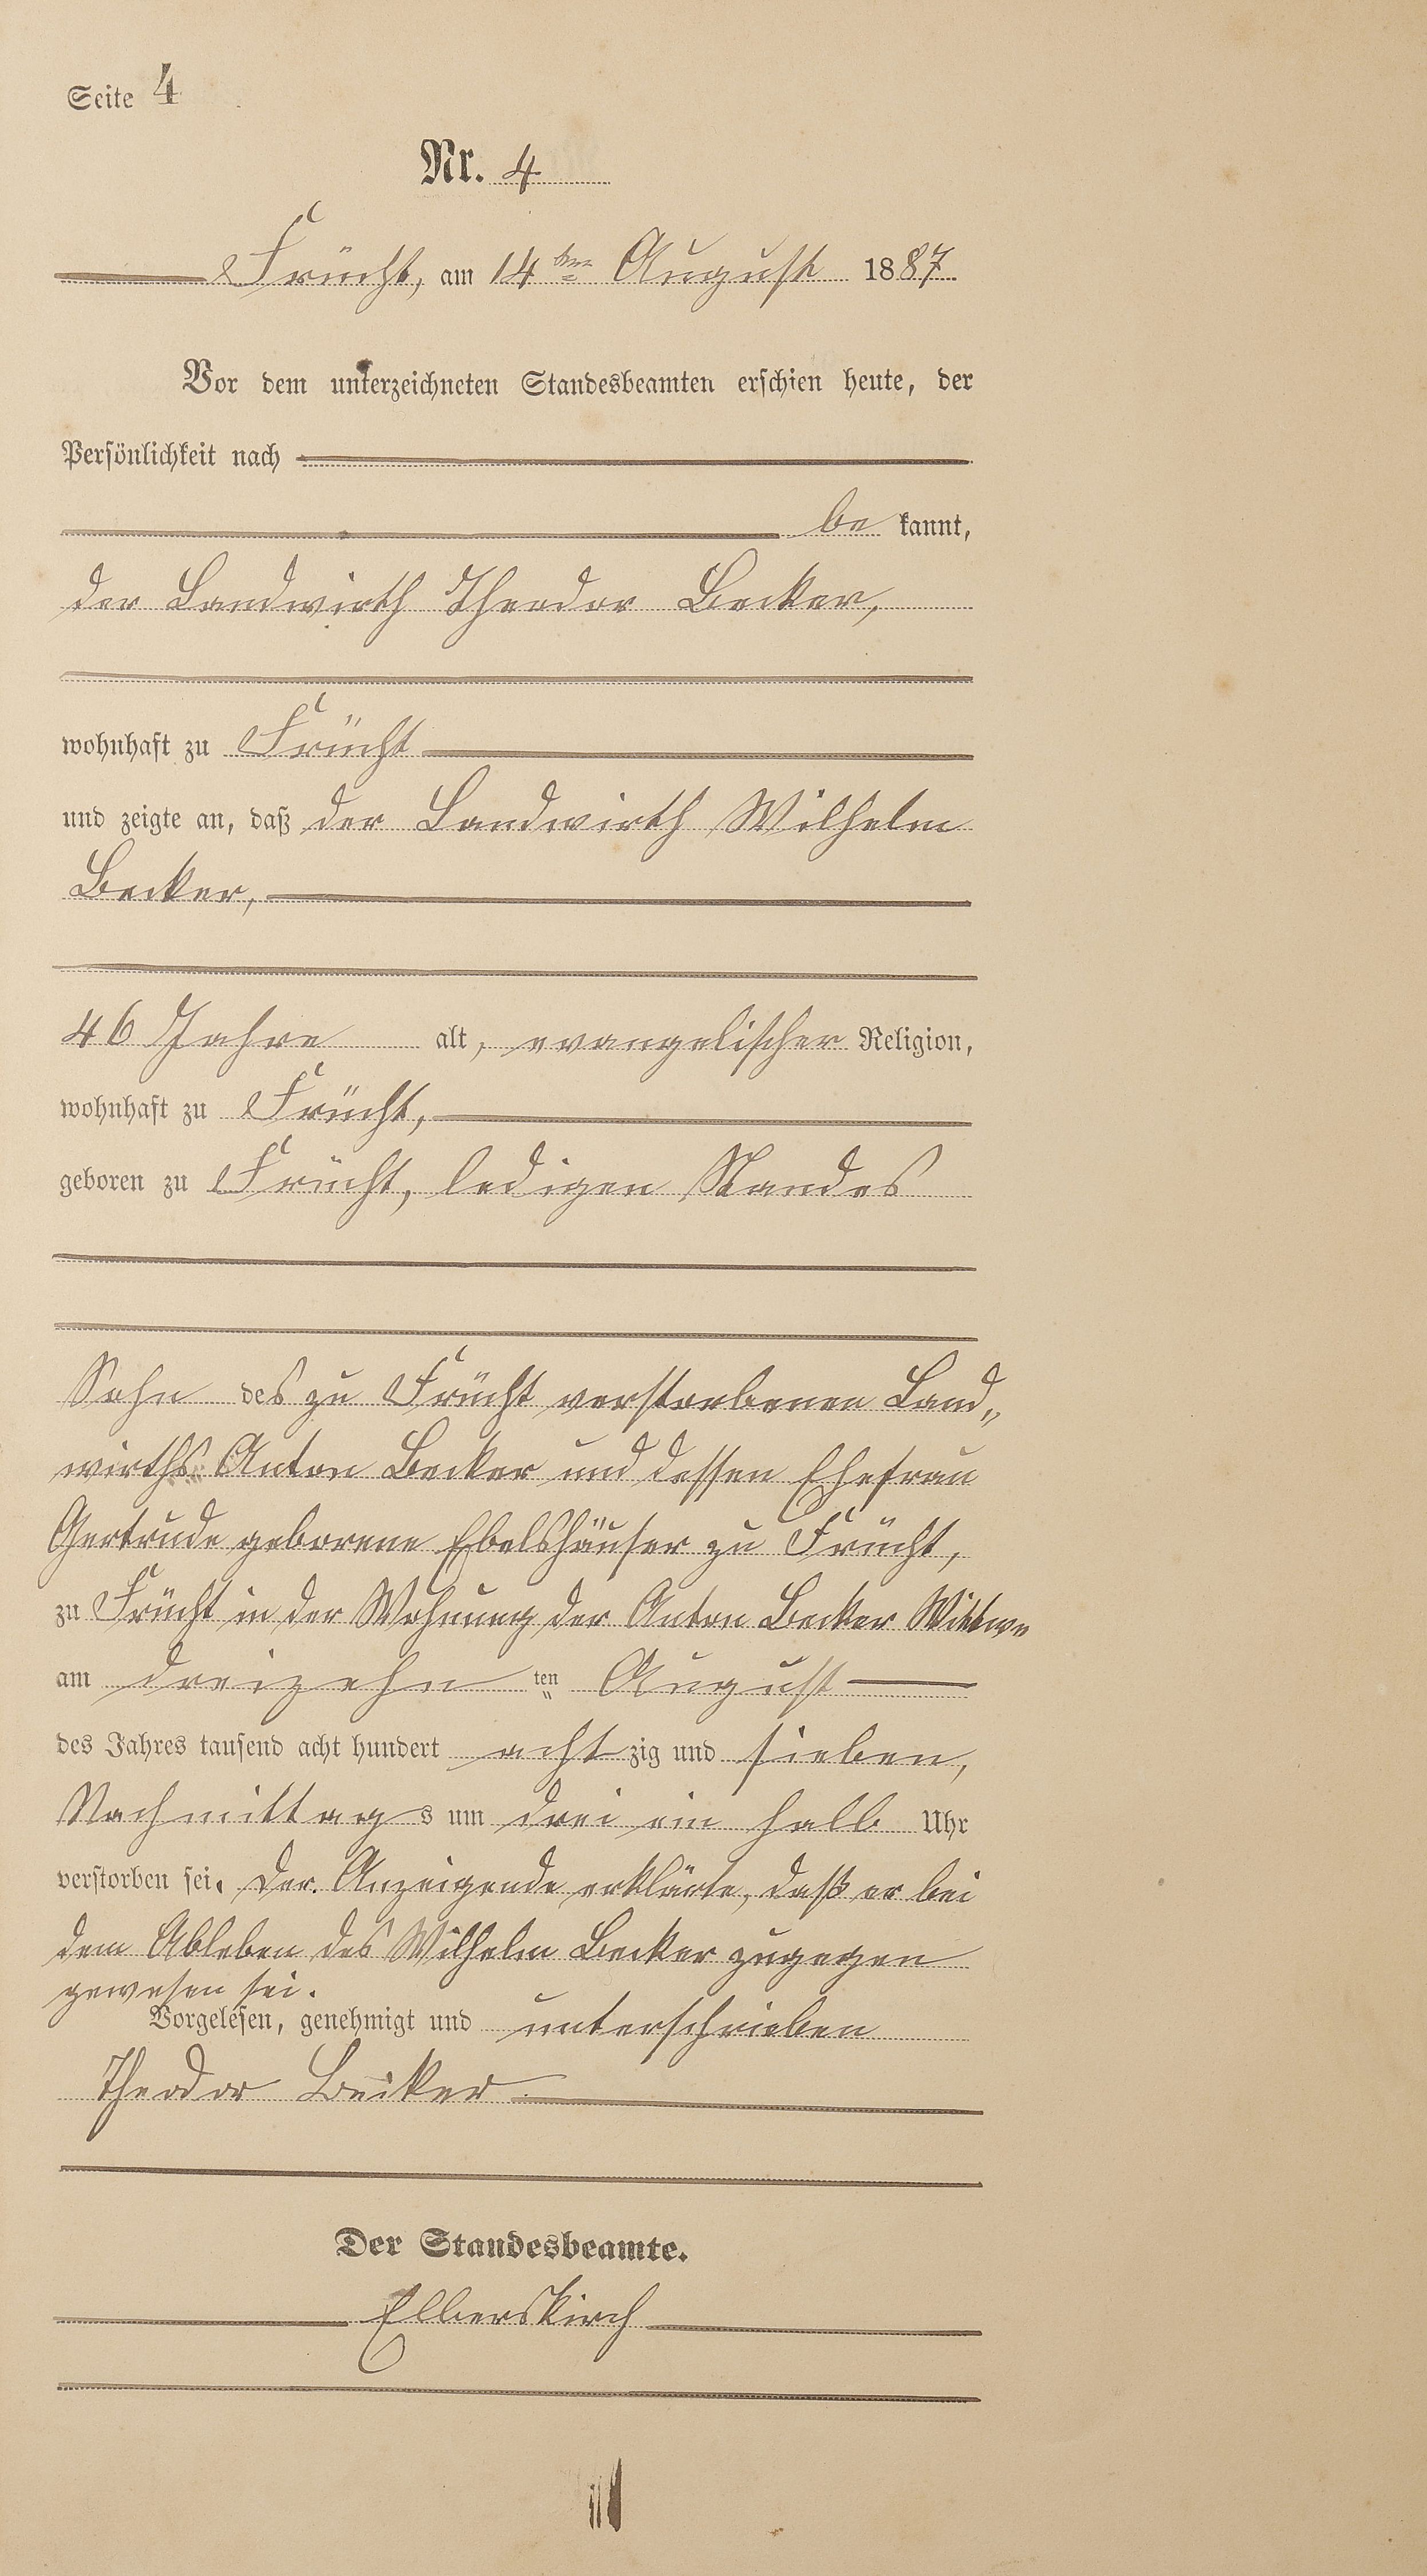 Seite 4
Nr. 4
Frücht, am 14ten August 1887.
Vor dem unterzeichneten Standesbeamten erschien heute, der
Persönlichkeit nach
be kannt,
der Landwirth Theodor Becker,
wohnhaft zu Frücht
und zeigte an, daß der Landwirth Wilhelm
Becker,
46 Jahre alt, evangelischer Religion,
wohnhaft zu Frücht,
geboren zu Frücht, ledigen Standes
Sohn des zu Frücht verstorbenen Land„
wirths Anton Becker und dessen Ehefrau
Gertrude geborene Ebelshäuser zu Frücht,
zu Frücht in der Wohnung der Anton Becker Wittwe
am dreizehn ten August
des Jahres tausend acht hundert acht zig und sieben,
Nachmittag s um drei ein halb Uhr
verstorben sei. Der Anzeigende erklärte, daß er bei
dem Ableben des Wilhelm Becker zugegen
gewesen sei.
Vorgelesen, genehmigt und unterschrieben
Theodor Becker
Der Standesbeamte.
Elberskirch